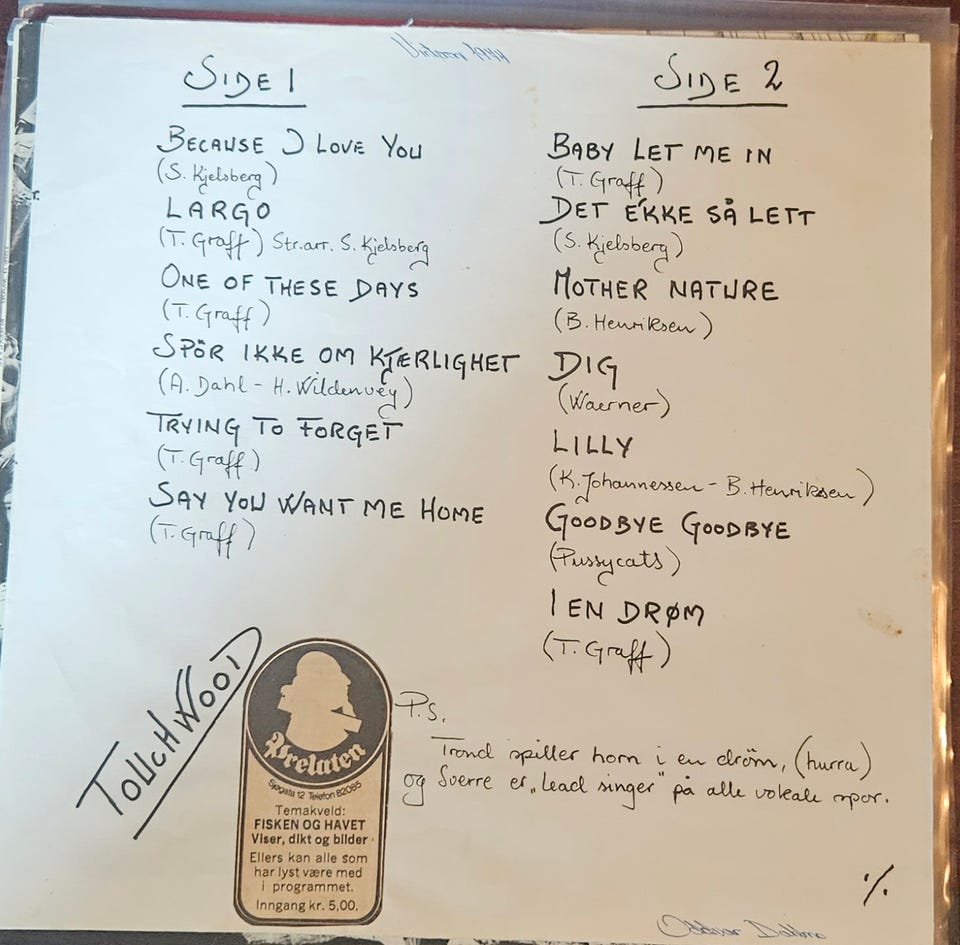 SIDE 1
BECAUSE I LOVE YOU
(S. Kjelsberg)
LARGO
(T. Graff) Str.arr. S. Kjelsberg
ONE OF THESE DAYS
(T. Graff)
SPÖR IKKE OM KJÆRLIGHET
(A. Dahl - H. Wildenvey)
TRYING TO FORGET
(T. Graff)
SAY YOU WANT ME HOME
(T. Graff)
SIDE 2
BABY LET ME IN
(T. Graff)
DET E'KKE SÅ LETT
(S. Kjelsberg)
MOTHER NATURE
(B. Henriksen)
DIG
(Waerner)
LILLY
(K. Johannessen - B. Henriksen)
GOODBYE GOODBYE
(Pussycats)
I EN DRØM
(T. Graff)
TOUCHWOOD
Prelaten
Sjøgata 12 Telefon 82085
Temakveld:
FISKEN OG HAVET
Viser, dikt og bilder
Ellers kan alle som
har lyst være med
i programmet.
Inngang kr. 5,00.
P.S.
Trond spiller horn i en dröm, (hurra)
og Sverre er „lead singer" på alle vokale spor.
·/.